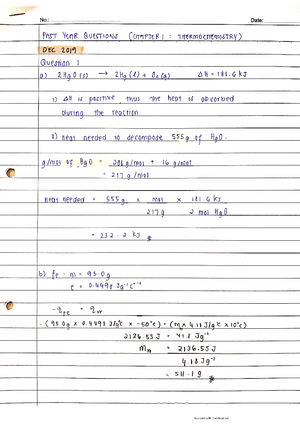 No.: Date:
PAST YEAR QUESTIONS (CHAPTER 1 : THERMOCHEMISTRY)
DEC 2019
Question 1
a) 2HgO (s) → 2Hg (l) + O₂ (g) ΔH = 181.6 kJ
i) ΔH is positive, thus the heat is absorbed
during the reaction
ii) heat needed to decompose 555g of HgO.
g/mol of HgO = 201 g/mol + 16 g/mol
= 217 g/mol
Heat needed = 555g × mol × 181.6 kJ
217g 2 mol HgO
= 232.2 kJ
b) Fe : m = 95.0g
c = 0.449 Jg⁻¹C°⁻¹
-qFe = qw
-(95.0g × 0.449 J/g°C × -50°C) = (m × 4.18 J/g°C × 10°C)
2136.55 J = 41.8 Jg⁻¹
m = 2136.55 J
4.18 Jg⁻¹
= 511.1 g